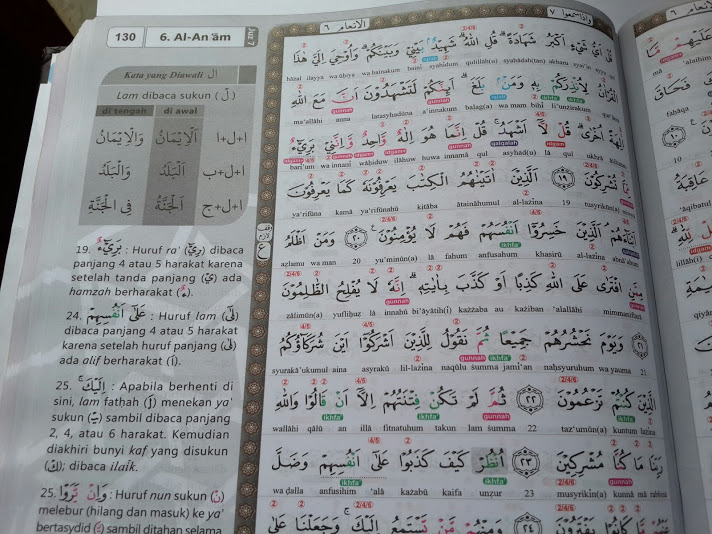 130
6. Al-An'ām
Juz 7
Kata yang Diawali ال
Lam dibaca sukun (لْ)
di tengah di awal
وَالْاِيْمَانُ اَلْاِيْمَانُ ا+ل+ا
وَالْبَلَدُ اَلْبَلَدُ ا+ل+ب
فِى الْجَنَّةِ اَلْجَنَّةُ ا+ل+ج
19. بَرِيْۤءٌ : Huruf ra' (رِيْۤ) dibaca
panjang 4 atau 5 harakat karena
setelah tanda panjang (يْ) ada
hamzah berharakat (ءٌ).
24. عَلٰٓى اَنْفُسِهِمْ : Huruf lam (لٰٓى)
dibaca panjang 4 atau 5 harakat
karena setelah huruf panjang
(لٰٓى) ada alif berharakat (اَ).
25. اِلَيْكَ : Apabila berhenti di
sini, lam fatḥah (لَ) menekan ya'
sukun (يْ) sambil dibaca panjang
2, 4, atau 6 harakat. Kemudian
diakhiri bunyi kaf yang disukun
(كْ); dibaca ilaik.
25. وَاِنْ يَّرَوْا : Huruf nun sukun (نْ)
melebur (hilang dan masuk) ke ya'
bertasydid (يَّ) sambil ditahan selama
الانعام ٦
واذاسمعوا ٧
قُلْ اَيُّ شَيْءٍ اَكْبَرُ شَهَادَةً ۗ قُلِ اللّٰهُ ۗ شَهِيْدٌۢ بَيْنِيْ وَبَيْنَكُمْ ۗ وَاُوْحِيَ اِلَيَّ هٰذَا
hāżal ilayya wa ūḥiya wa bainakum baini syahidum qulillāh(u) syahādah(tan) akbaru syai'in ayyu
الْقُرْاٰنُ لِاُنْذِرَكُمْ بِهٖ وَمَنْۢ بَلَغَ ۗ اَىِٕنَّكُمْ لَتَشْهَدُوْنَ اَنَّ مَعَ اللّٰهِ
ma'allāhi anna latasyhadūna a'innakum balag(a) wa mam bihī li'unżirakum
اٰلِهَةً اُخْرٰى ۗ قُلْ لَّآ اَشْهَدُ ۚ قُلْ اِنَّمَا هُوَ اِلٰهٌ وَّاحِدٌ وَّاِنَّنِيْ بَرِيْۤءٌ
bari'um wa innanī wāḥiduw ilāhuw huwa innamā qul asyhad(u) lā qul ukhrā
مِّمَّا تُشْرِكُوْنَ ۘ ١٩ اَلَّذِيْنَ اٰتَيْنٰهُمُ الْكِتٰبَ يَعْرِفُوْنَهٗ كَمَا يَعْرِفُوْنَ
ya'rifūna kamā ya'rifūnahū kitāba ātaināhumul al-lażīna 19 tusyrikūn(a)
اَبْنَاۤءَهُمْ ۘ اَلَّذِيْنَ خَسِرُوْٓا اَنْفُسَهُمْ فَهُمْ لَا يُؤْمِنُوْنَ ٢٠ وَمَنْ اَظْلَمُ
aẓlamu wa man 20 yu'minūn(a) lā fahum anfusahum khasirū al-lażīna
مِمَّنِ افْتَرٰى عَلَى اللّٰهِ كَذِبًا اَوْ كَذَّبَ بِاٰيٰتِهٖ ۗ اِنَّهٗ لَا يُفْلِحُ الظّٰلِمُوْنَ
ẓālimūn(a) yufliḥuẓ lā innahū bi'āyātih(ī) każżaba au każiban 'alallāhi mimmaniftarā
٢١ وَيَوْمَ نَحْشُرُهُمْ جَمِيْعًا ثُمَّ نَقُوْلُ لِلَّذِيْنَ اَشْرَكُوْٓا اَيْنَ شُرَكَاۤؤُكُمُ
syurakā'ukumul aina asyrakū lil-lażīna naqūlu ṡumma jamī'an naḥsyuruhum wa yauma 21
الَّذِيْنَ كُنْتُمْ تَزْعُمُوْنَ ٢٢ ثُمَّ لَمْ تَكُنْ فِتْنَتُهُمْ اِلَّآ اَنْ قَالُوْا وَاللّٰهِ
wallāhi qālū an illā fitnatuhum takun lam ṡumma 22 taz'umūn(a) kuntum lażīna
رَبِّنَا مَا كُنَّا مُشْرِكِيْنَ ٢٣ اُنْظُرْ كَيْفَ كَذَبُوْا عَلٰٓى اَنْفُسِهِمْ وَضَلَّ
wa ḍalla anfusihim 'alā każabū kaifa unẓur 23 musyrikīn(a) kunnā mā rabbinā
عَنْهُمْ مَّا كَانُوْا يَفْتَرُوْنَ ٢٤ وَمِنْهُمْ مَّنْ يَّسْتَمِعُ اِلَيْكَ ۚ وَجَعَلْنَا عَلٰى